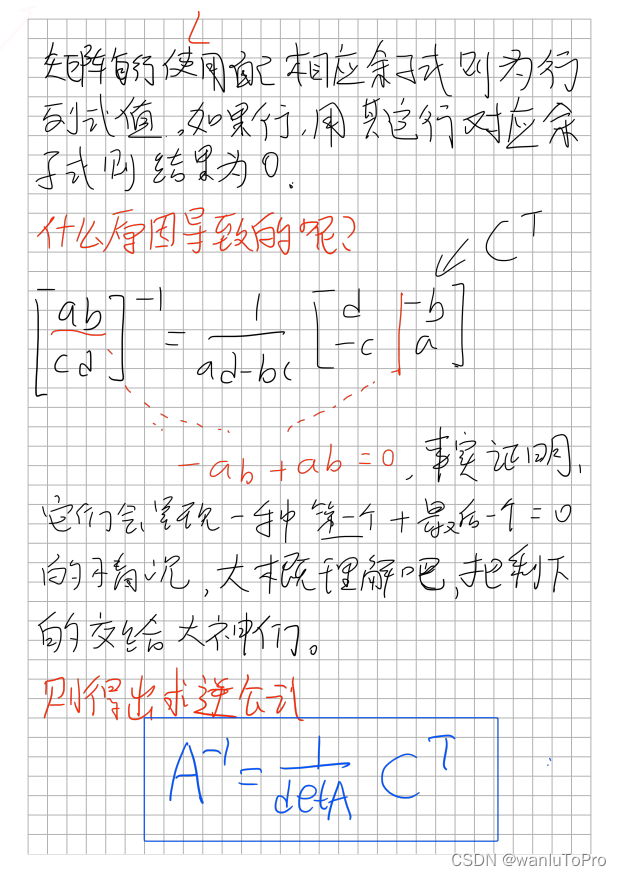 矩阵每行使用自己相应余子式则为行
列式值,如果行,用其它行对应余
子式则结果为0.
什么原因导致的呢?
C^T
[ab cd]^-1 = 1/(ad-bc) [d -b -c a]
-ab+ab=0,事实证明,
它们会呈现一种第一个+最后一个=0
的情况,大概理解吧,把剩下
的交给大神们。
则得出求逆公式
A^-1 = 1/detA C^T
CSDN @wanluToPro